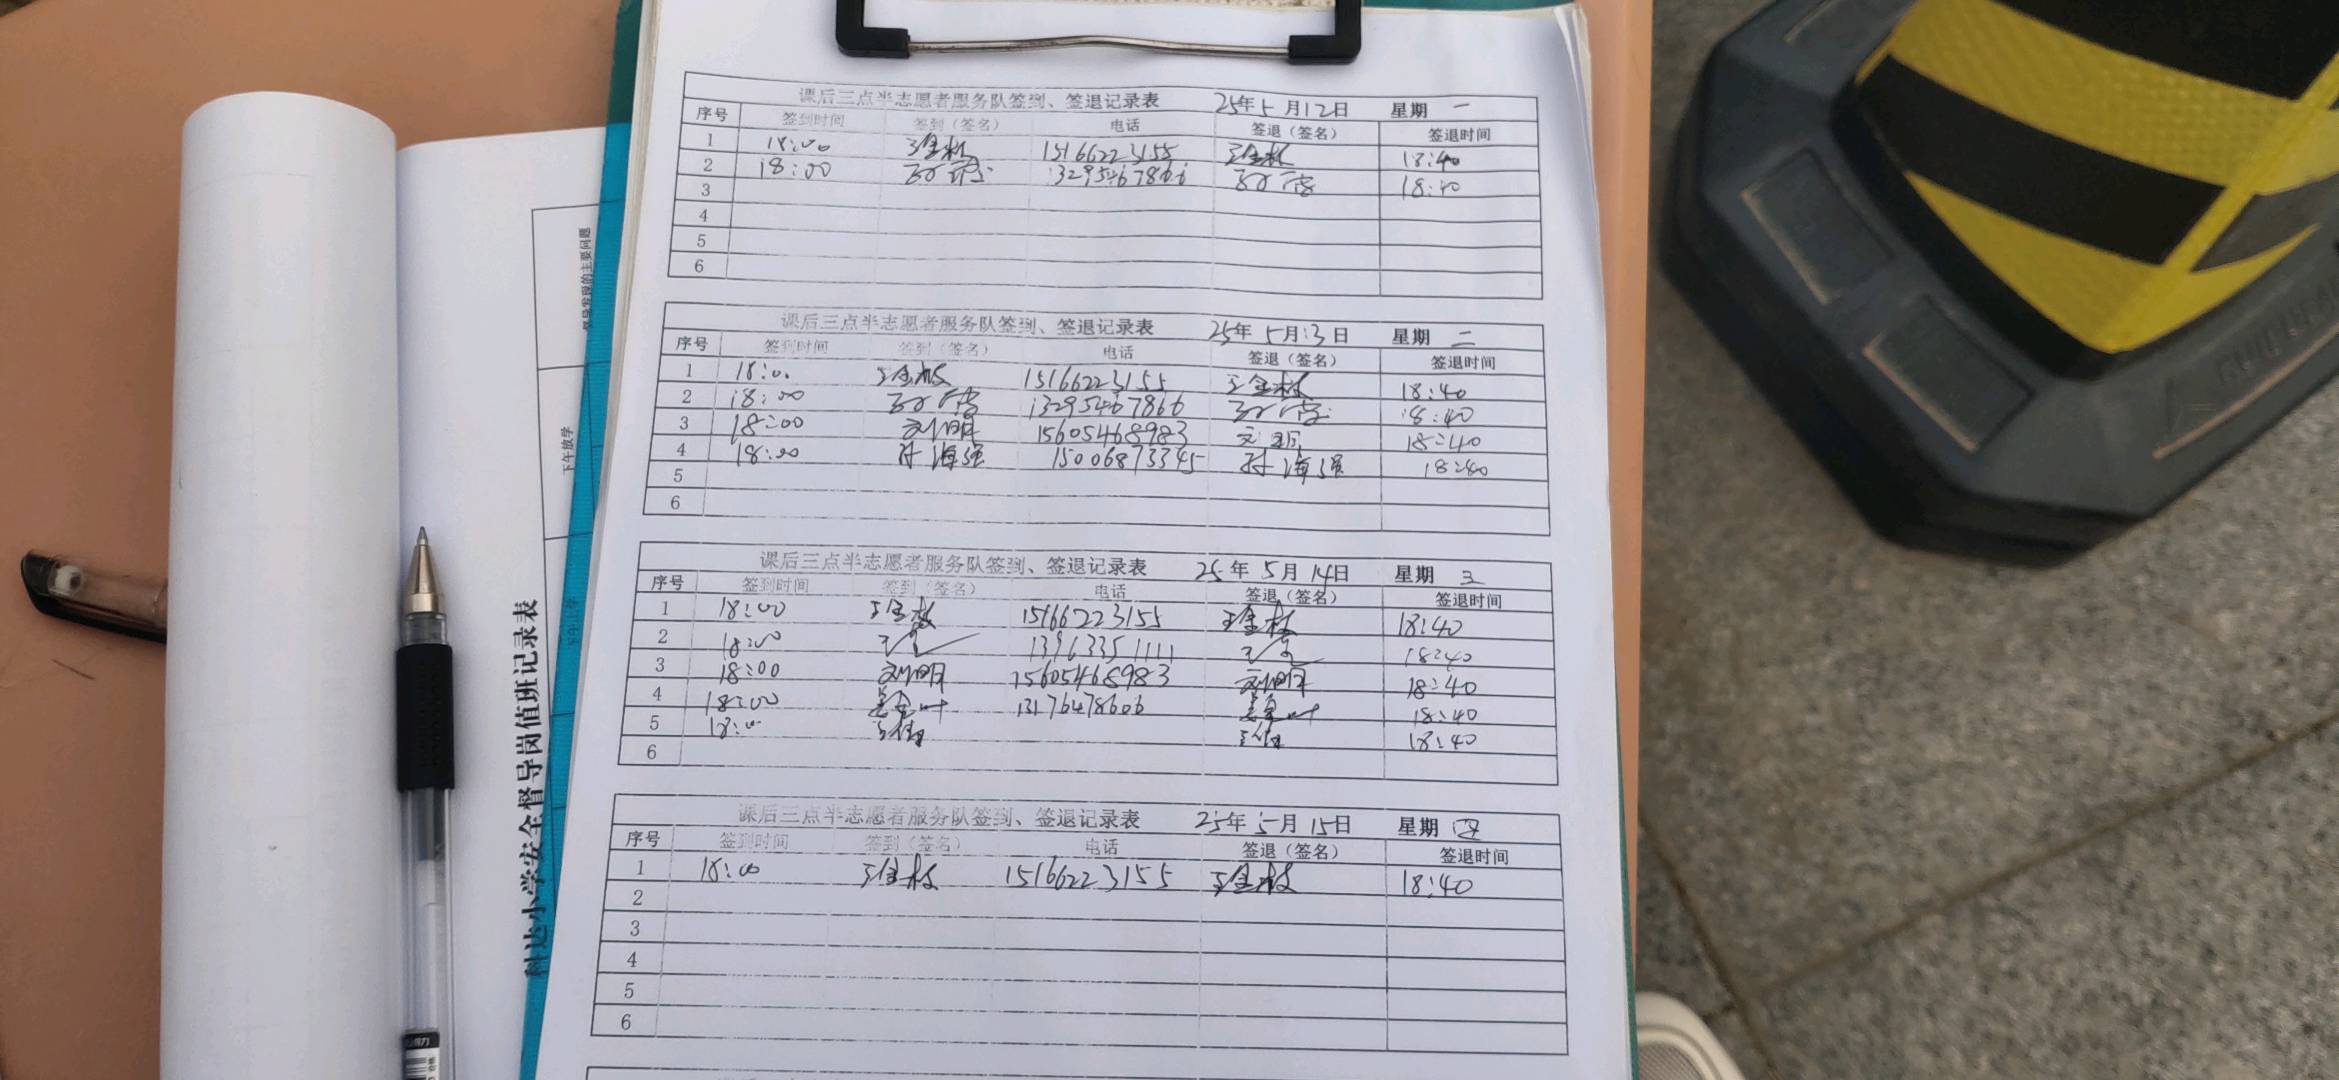 课后三点半志愿者服务队签到、签退记录表 25年5月12日 星期 一
序号 签到时间 签到（签名） 电话 签退（签名） 签退时间
1 18:00 15166223155 18:40
2 18:00 13295467866 18:40
3
4
5
6
课后三点半志愿者服务队签到、签退记录表 25年5月13日 星期 二
序号 签到时间 签到（签名） 电话 签退（签名） 签退时间
1 18:00 15166223155 18:40
2 18:00 13295467866 18:40
3 18:00 刘明 15605468983 18:40
4 18:00 孙海强 15006873345 孙海强 18:40
5
6
课后三点半志愿者服务队签到、签退记录表 25年5月14日 星期 三
序号 签到时间 签到（签名） 电话 签退（签名） 签退时间
1 18:00 15166223155 18:40
2 18:00 13963351111 18:40
3 18:00 刘明 15605468983 刘明 18:40
4 18:00 13176478606 18:40
5 18:00 18:40
6
课后三点半志愿者服务队签到、签退记录表 25年5月15日 星期 四
序号 签到时间 签到（签名） 电话 签退（签名） 签退时间
1 18:00 15166223155 18:40
2
3
4
5
6
科达小学安全督导岗值班记录表
下午放学
督导发现的主要问题